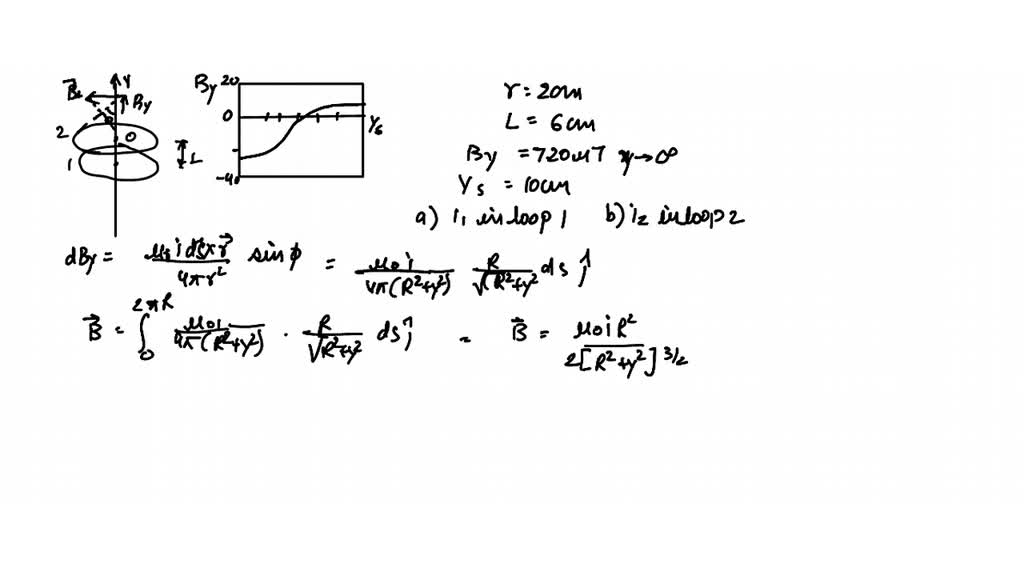 Y
By
2
O
1
L
By 20
0
-40
Ys
r = 20cm
L = 6cm
By = 720nT y→∞
Ys = 10cm
a) i1 in loop 1 b) i2 in loop 2
dBy = μ0 i ds × r⃗ / 4πr² sinφ = μ0 i / 4π(R²+y²) R / √R²+y² ds ĵ
B⃗ = ∫ 0 2πR μ0 i / 4π(R²+y²) · R / √R²+y² ds ĵ = B⃗ = μ0 i R² / 2[R²+y²]^3/2